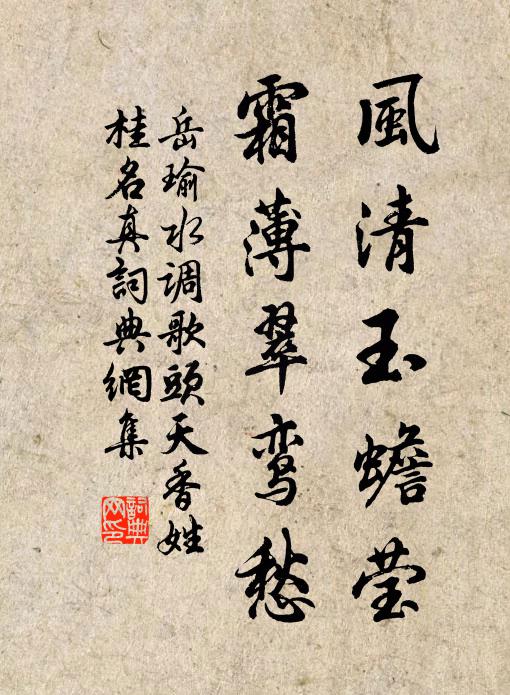 風清玉蟾莹
霜薄翠鸾愁
岳瑜水調歌頭天香姓
桂名真詞典網集
詞典网印